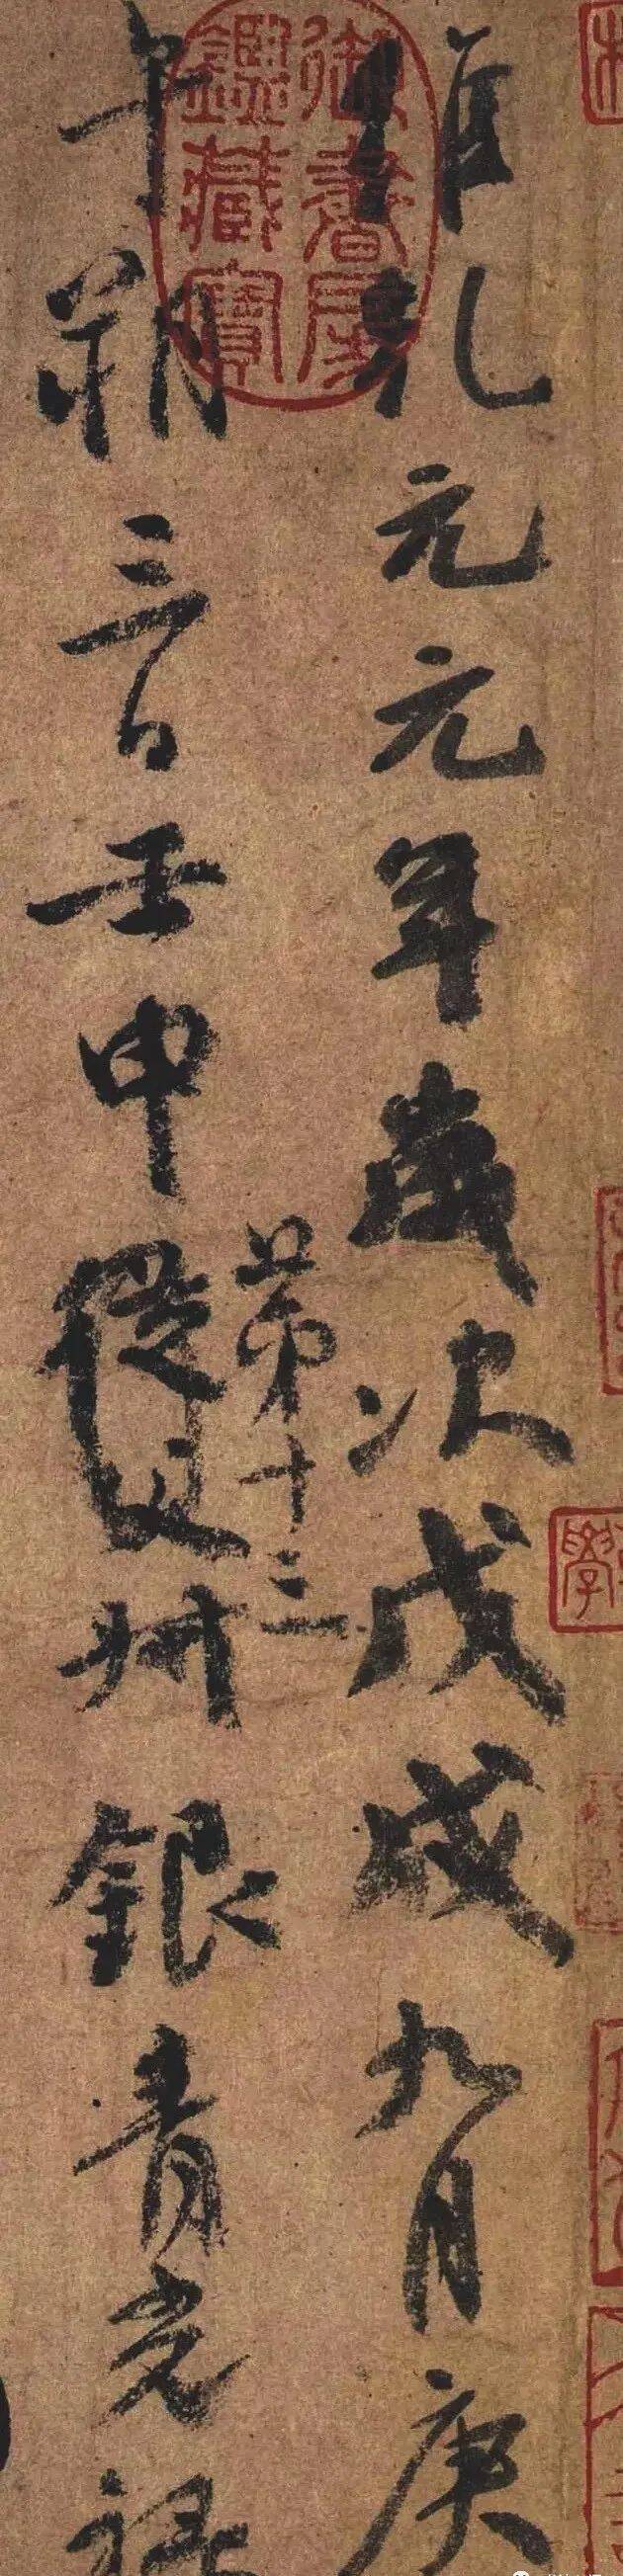 維乾元元年歲次戊戌九月庚
第十三
午朔三日壬申從父叔銀青光祿
御書房
鑑藏寶
學